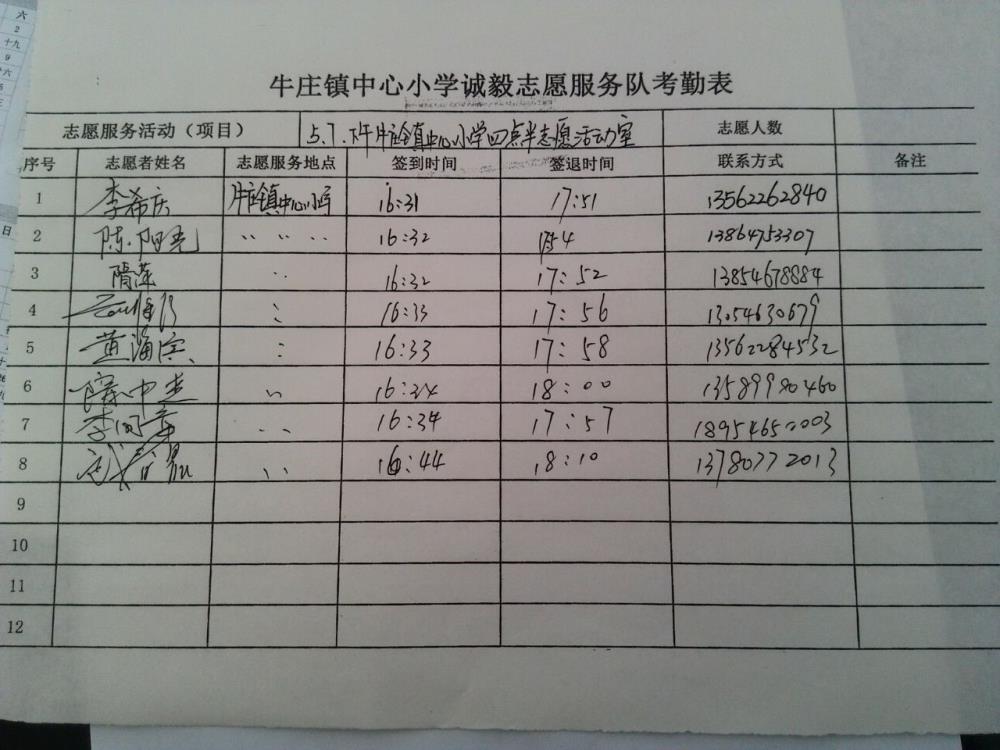 牛庄镇中心小学诚毅志愿服务队考勤表
志愿服务活动（项目） 5.7.下午牛庄镇中心小学四点半志愿活动室 志愿人数
序号 志愿者姓名 志愿服务地点 签到时间 签退时间 联系方式 备注
1 李希庆 牛庄镇中心小学 16:31 17:51 13562262840
2 陈阳光 〃 〃 〃 16:32 13864753307
3 隋莲 〃 16:32 17:52 13854678884
4 〃 16:33 17:56 13054630679
5 黄海滨 〃 16:33 17:58 13562284532
6 〃 16:34 18:00 13589980460
7 〃 16:34 17:57 18954650003
8 〃 16:44 18:10 13780772013
9
10
11
12
六
2
十九
9
日